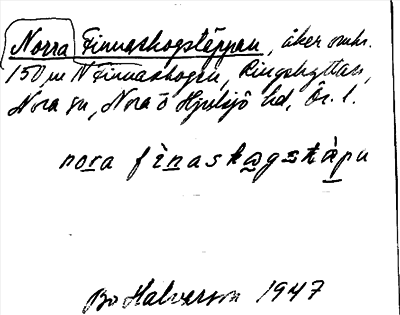 Norra Finnskogstäppan, åker omkr.
150 m N Finnskogen, Ringshyttan,
Nora sn, Nora o Hjulsjö hd, Ör. l.
nora fìnaskogstàpu
Bo Halverson 1947